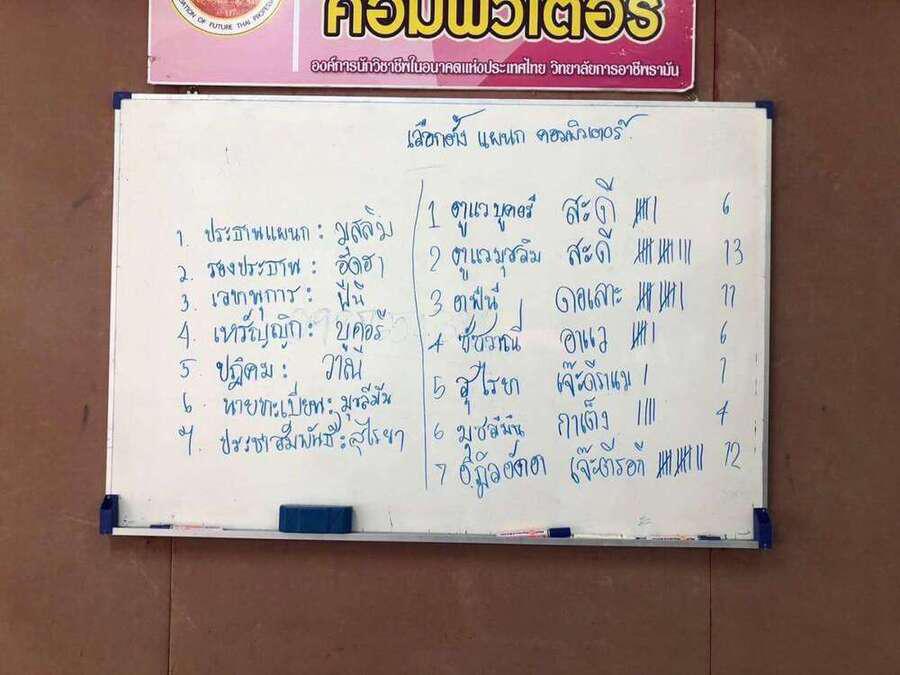 OF FUTURE THAI PROFES
คอมพิวเตอร์
องค์การนักวิชาชีพในอนาคตแห่งประเทศไทย วิทยาลัยการอาชีพรามัน
เลือกตั้ง แผนก คอมพิวเตอร์
1. ประธานแผนก : มุสลิม
2. รองประธาน : ฮัดฮา
3. เลขานุการ : ฟีนี
4. เหรัญญิก : บูคอรี
5. ปฏิคม : วาณี
6. นายทะเบียน : มุสลีมีน
7. ประชาสัมพันธ์ : สุไรยา
1 ตูแวบูคอรี สะดี 6
2 ตูแวมุสลิม สะดี 13
3 ดอเลาะ 11
4 อาแว 6
5 สุไรยา 1
6 กาเต็ง 4
7 12